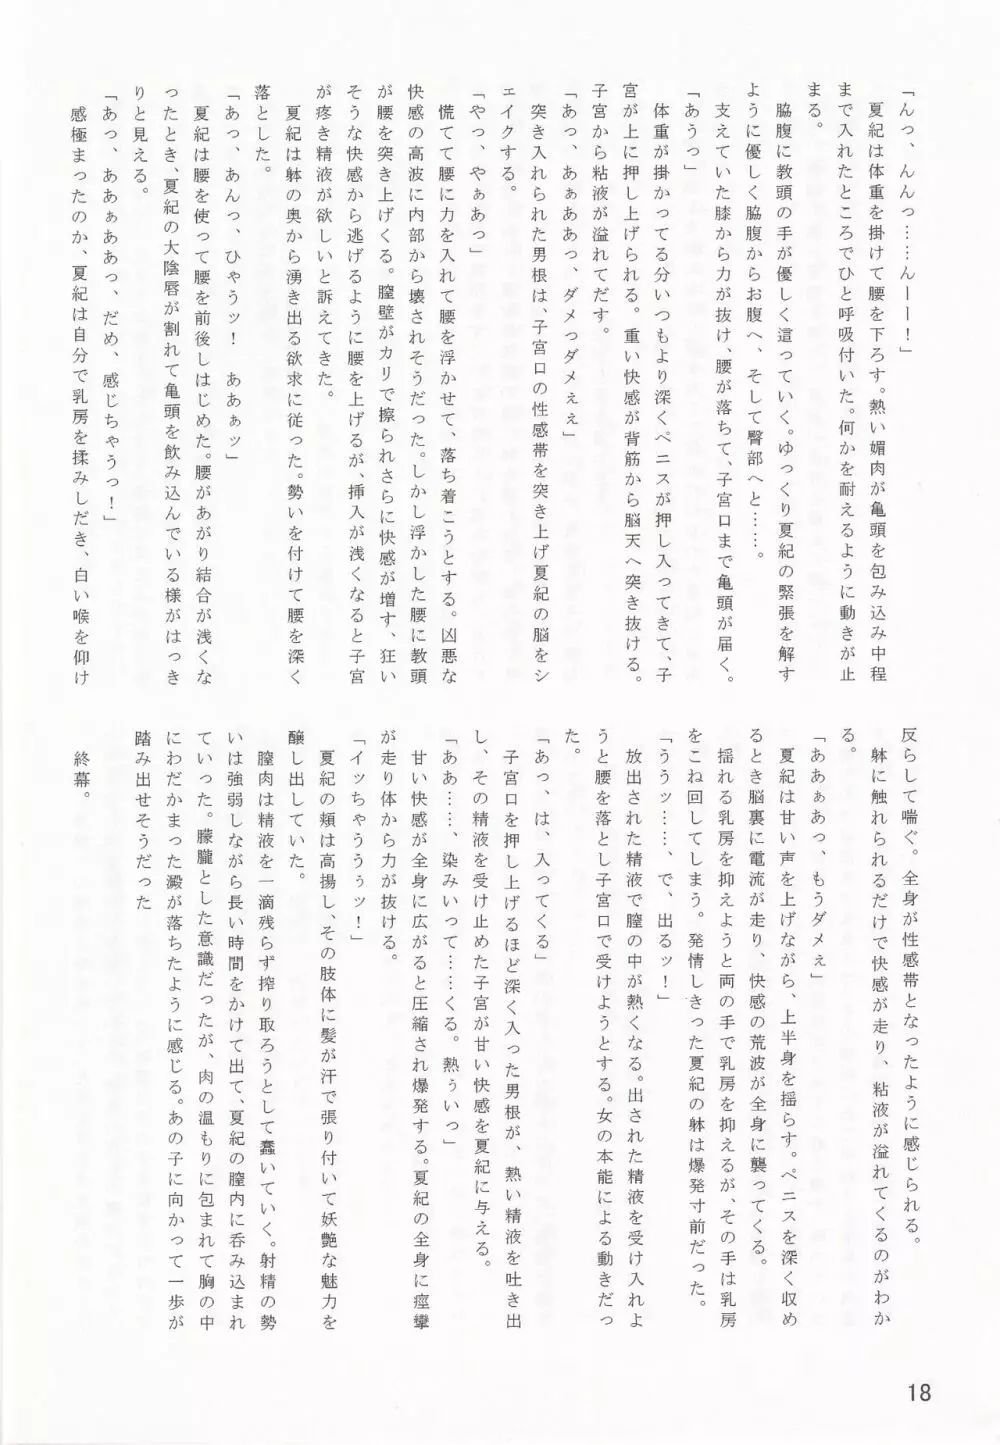 「んっ、んんっ……んーー！」
　夏紀は体重を掛けて腰を下ろす。熱い媚肉が亀頭を包み込み中程
まで入れたところでひと呼吸付いた。何かを耐えるように動きが止
まる。
　脇腹に教頭の手が優しく這っていく。ゆっくり夏紀の緊張を解す
ように優しく脇腹からお腹へ、そして臀部へと……。
　支えていた膝から力が抜け、腰が落ちて、子宮口まで亀頭が届く。
「あうっ」
　体重が掛かってる分いつもより深くペニスが押し入ってきて、子
宮が上に押し上げられる。重い快感が背筋から脳天へ突き抜ける。
子宮から粘液が溢れてだす。
「あっ、あぁああっ、ダメっダメぇぇ」
　突き入れられた男根は、子宮口の性感帯を突き上げ夏紀の脳をシ
ェイクする。
「やっ、やぁあっ」
　慌てて腰に力を入れて腰を浮かせて、落ち着こうとする。凶悪な
快感の高波に内部から壊されそうだった。しかし浮かした腰に教頭
が腰を突き上げくる。膣壁がカリで擦られさらに快感が増す、狂い
そうな快感から逃げるように腰を上げるが、挿入が浅くなると子宮
が疼き精液が欲しいと訴えてきた。
　夏紀は躰の奥から湧き出る欲求に従った。勢いを付けて腰を深く
落とした。
「あっ、あんっ、ひゃうッ！　ああぁッ」
　夏紀は腰を使って腰を前後しはじめた。腰があがり結合が浅くな
ったとき、夏紀の大陰唇が割れて亀頭を飲み込んでいる様がはっき
りと見える。
「あっ、ああぁああっ、だめ、感じちゃうっ！」
　感極まったのか、夏紀は自分で乳房を揉みしだき、白い喉を仰け
反らして喘ぐ。全身が性感帯となったように感じられる。
　躰に触れられるだけで快感が走り、粘液が溢れてくるのがわか
る。
「ああぁあっ、もうダメぇ」
　夏紀は甘い声を上げながら、上半身を揺らす。ペニスを深く収め
るとき脳裏に電流が走り、快感の荒波が全身に襲ってくる。
　揺れる乳房を抑えようと両の手で乳房を抑えるが、その手は乳房
をこね回してしまう。発情しきった夏紀の躰は爆発寸前だった。
「ううッ……、で、出るッ！」
　放出された精液で膣の中が熱くなる。出された精液を受け入れよ
うと腰を落とし子宮口で受けようとする。女の本能による動きだっ
た。
「あっ、は、入ってくる」
　子宮口を押し上げるほど深く入った男根が、熱い精液を吐き出
し、その精液を受け止めた子宮が甘い快感を夏紀に与える。
「ああ……、染みいって……くる。熱ぅいっ」
　甘い快感が全身に広がると圧縮され爆発する。夏紀の全身に痙攣
が走り体から力が抜ける。
「イッちゃうううぅッ！」
　夏紀の頬は高揚し、その肢体に髪が汗で張り付いて妖艶な魅力を
醸し出していた。
　膣肉は精液を一滴残らず搾り取ろうとして蠢いていく。射精の勢
いは強弱しながら長い時間をかけて出て、夏紀の膣内に呑み込まれ
ていった。朦朧とした意識だったが、肉の温もりに包まれて胸の中
にわだかまった澱が落ちたように感じる。あの子に向かって一歩が
踏み出せそうだった
　終幕。
18